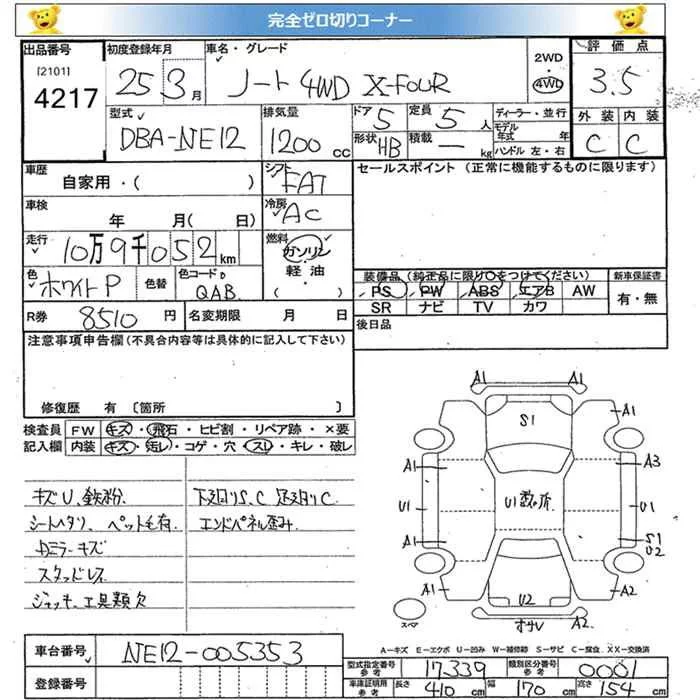 完全ゼロ切りコーナー
出品番号 初度登録年月 車名・グレード 評価点
[2101] 4217
25 3月 ノート 4WD X-FOUR
2WD・4WD
3.5
型式 排気量 ドア 定員 ディーラー・並行 外装 内装
DBA-NE12 1200cc 5 5人 モデル年式 年 C C
形状 HB 積載 ー kg ハンドル 左・右
車歴 シフト セールスポイント (正常に機能するものに限ります)
自家用・( ) FAT
車検 冷房
年 月( 日) AC
走行 燃料
10万9千052km ガソリン
軽油
( )
色 ホワイトP 色替 色コード QAB 装備品(純正品に限り○をつけてください) 新車保証書
PS PW ABS エアB AW 有・無
SR ナビ TV カワ
R券 8510円 名変期限 月 日 後日品
注意事項申告欄(不具合内容等は具体的に記入して下さい)
修復歴 有 [箇所 ]
検査員 FW キズ・飛石・ヒビ割・リペア跡・×要
記入欄 内装 キズ・汚レ・コゲ・穴・スレ・キレ・破レ
キズU、鉄粉 下廻りS、C 足廻りC
シートヘタリ、ペット毛有 エンドパネル歪み
Dミラーキズ
スタッドレス
ジャッキ、工具類欠
A1 A1
S1 A1
A1 A3
U1 U1数ヶ所 U1
A1 S1
U2
A1 U2 A2
スペア オサレ A2
A-キズ E-エクボ U-凹み W-補修跡 S-サビ C-腐食 XX-交換済
車台番号 NE12-005353
登録番号
型式指定番号参考 17339 類別区分番号参考 0001
車庫証明用参考 長さ 410cm 幅 170cm 高さ 154cm